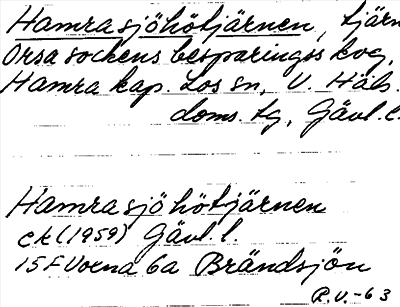 Hamrasjöhötjärnen, tjärn
Orsa sockens besparingsskog,
Hamra kap. Los sn, V. Häls.
doms. tg, Gävl. l.
Hamrasjöhötjärnen
ek (1959) Gävl. l.
15F Voxna 6a Brändsjön
R.V.-63